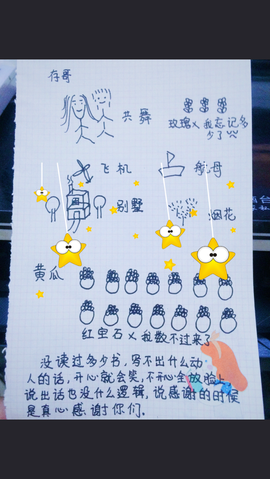 存哥
共舞
玫瑰x我忘记多
少了
飞机
航母
别墅
烟花
黄瓜
红宝石x我数不过来了
没读过多少书，写不出什么动
人的话，开心就会笑，不开心会放脸，
说出话也没什么逻辑，说感谢的时候
是真心感谢你们。